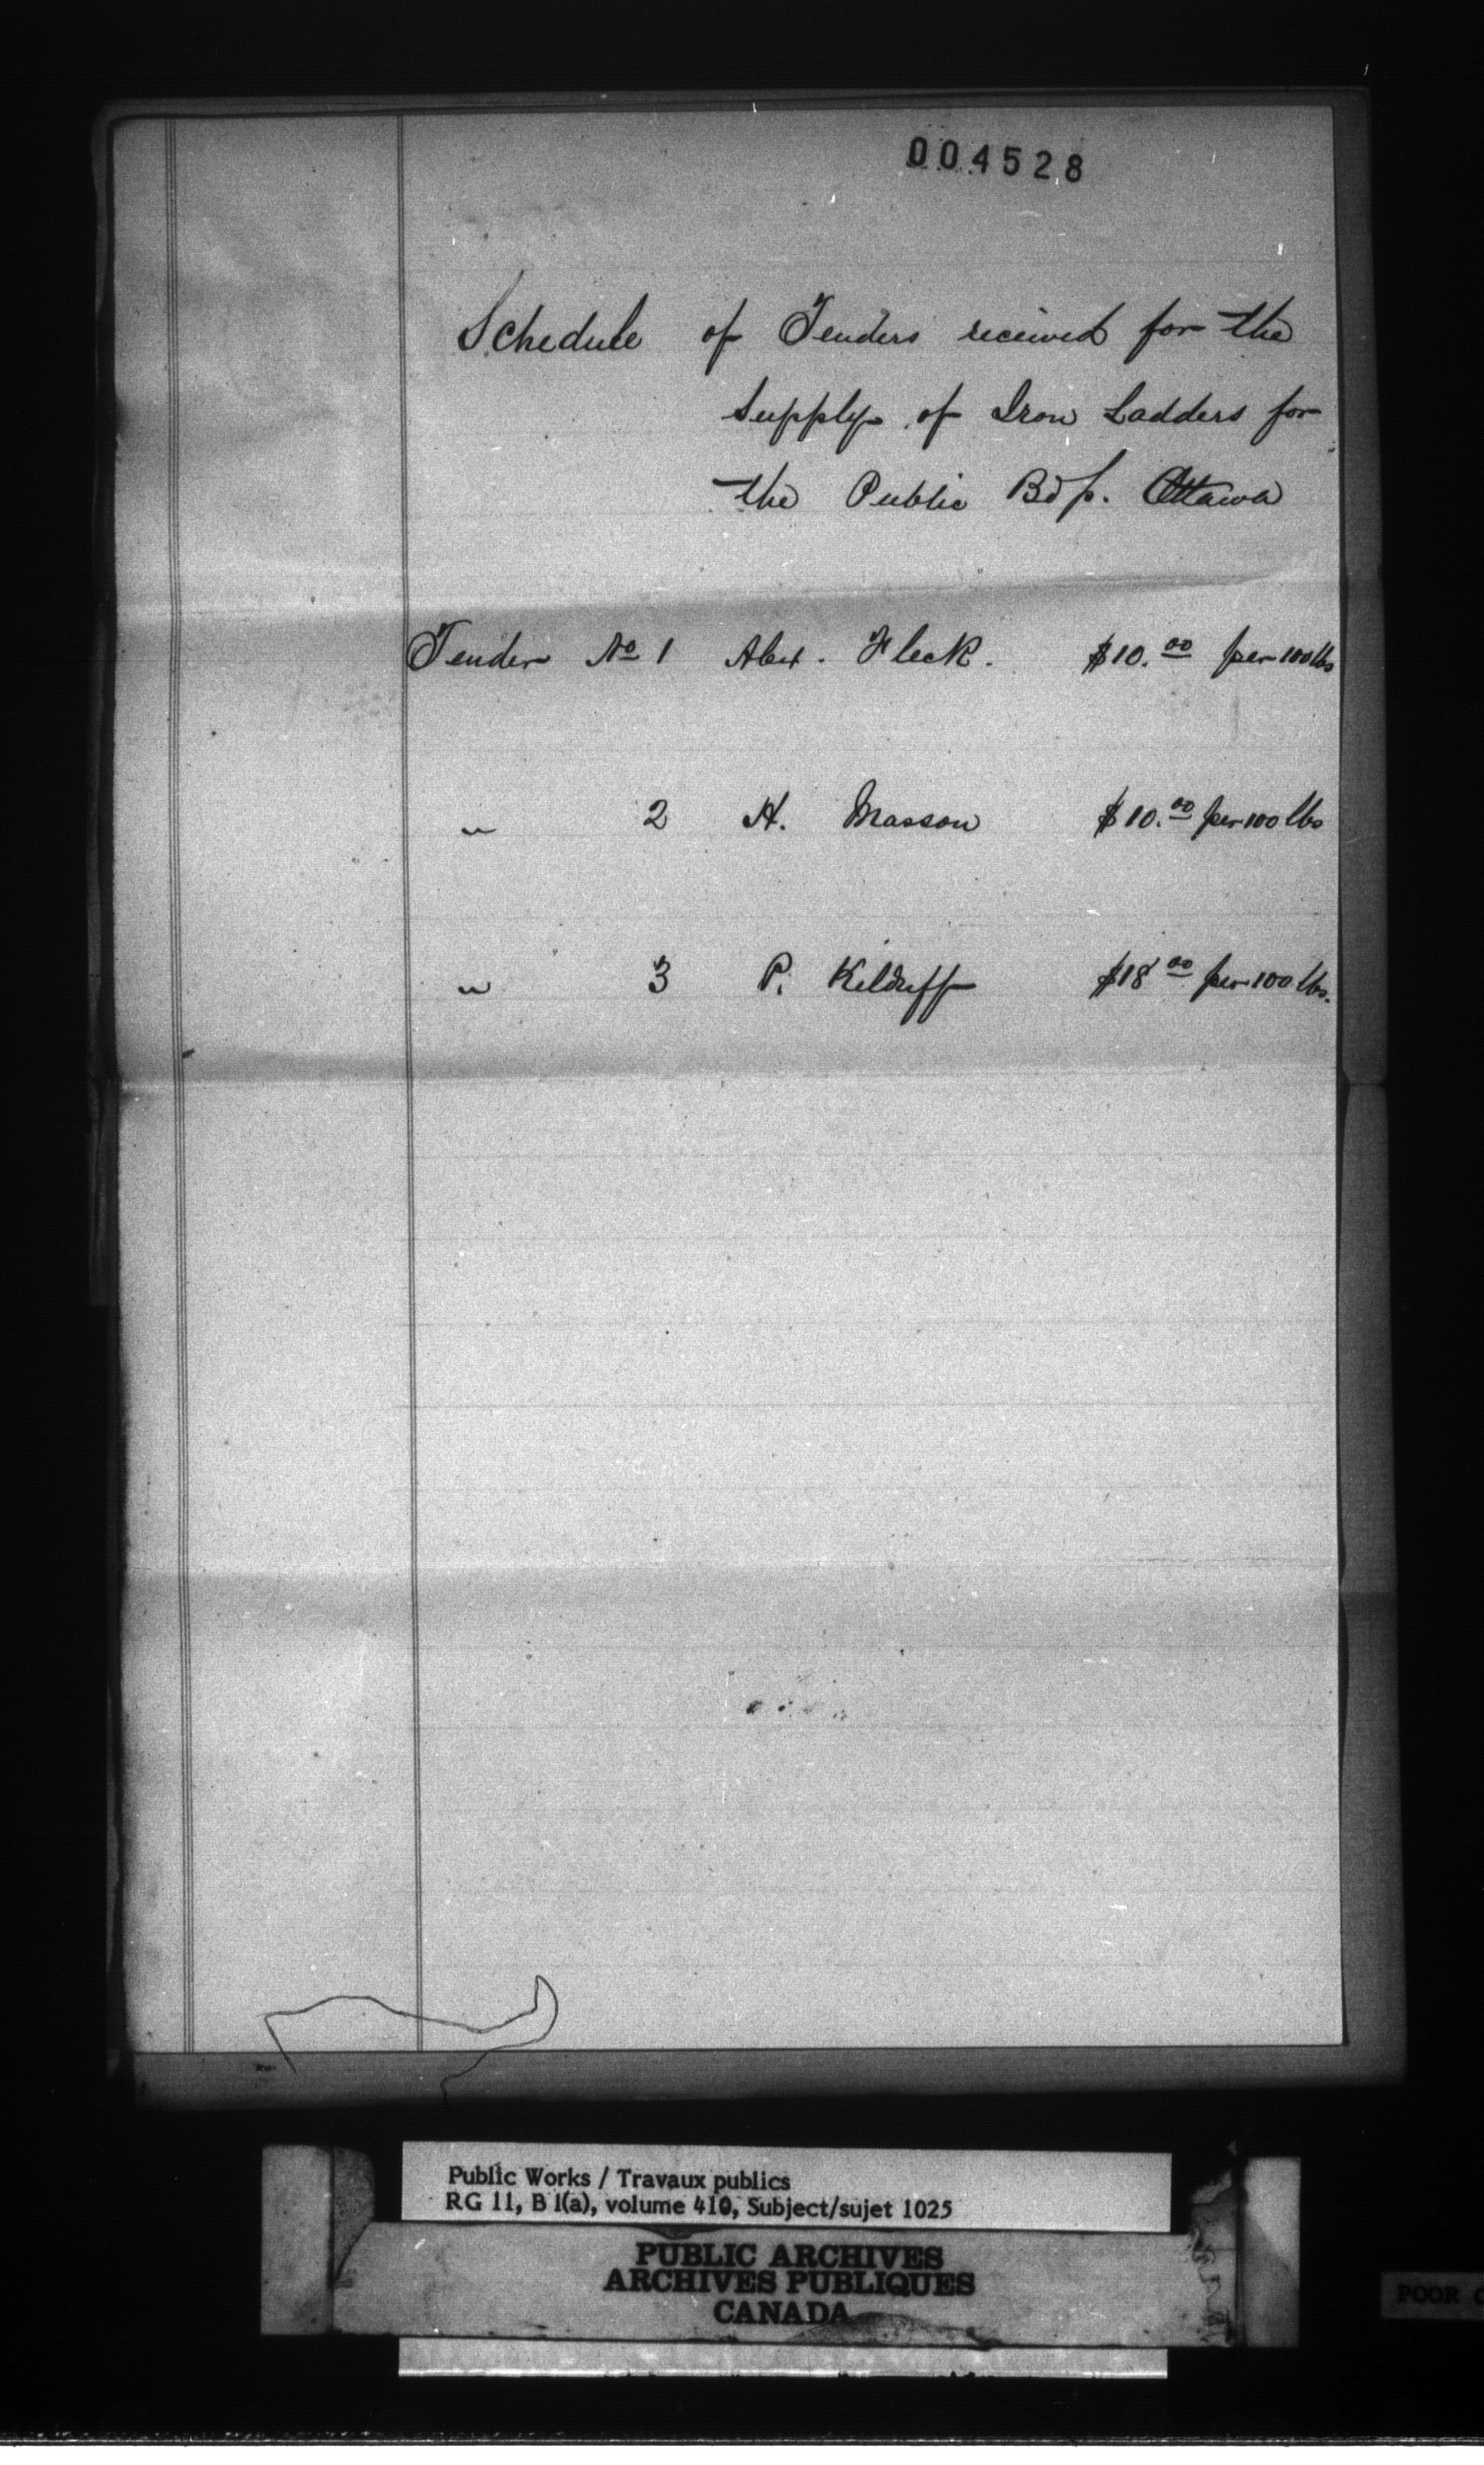 004528
Schedule of Tenders received for the
Supply of Iron Ladders for
the Public Bdgs. Ottawa
Tender No 1 Alex. Fleck. $10.00 per 100 lbs
" 2 A. Masson $10.00 per 100 lbs
" 3 P. Kilduff $18 00 per 100 lbs.
Public Works / Travaux publics
RG 11, B 1(a), volume 410, Subject/sujet 1025
PUBLIC ARCHIVES
ARCHIVES PUBLIQUES
CANADA
POOR